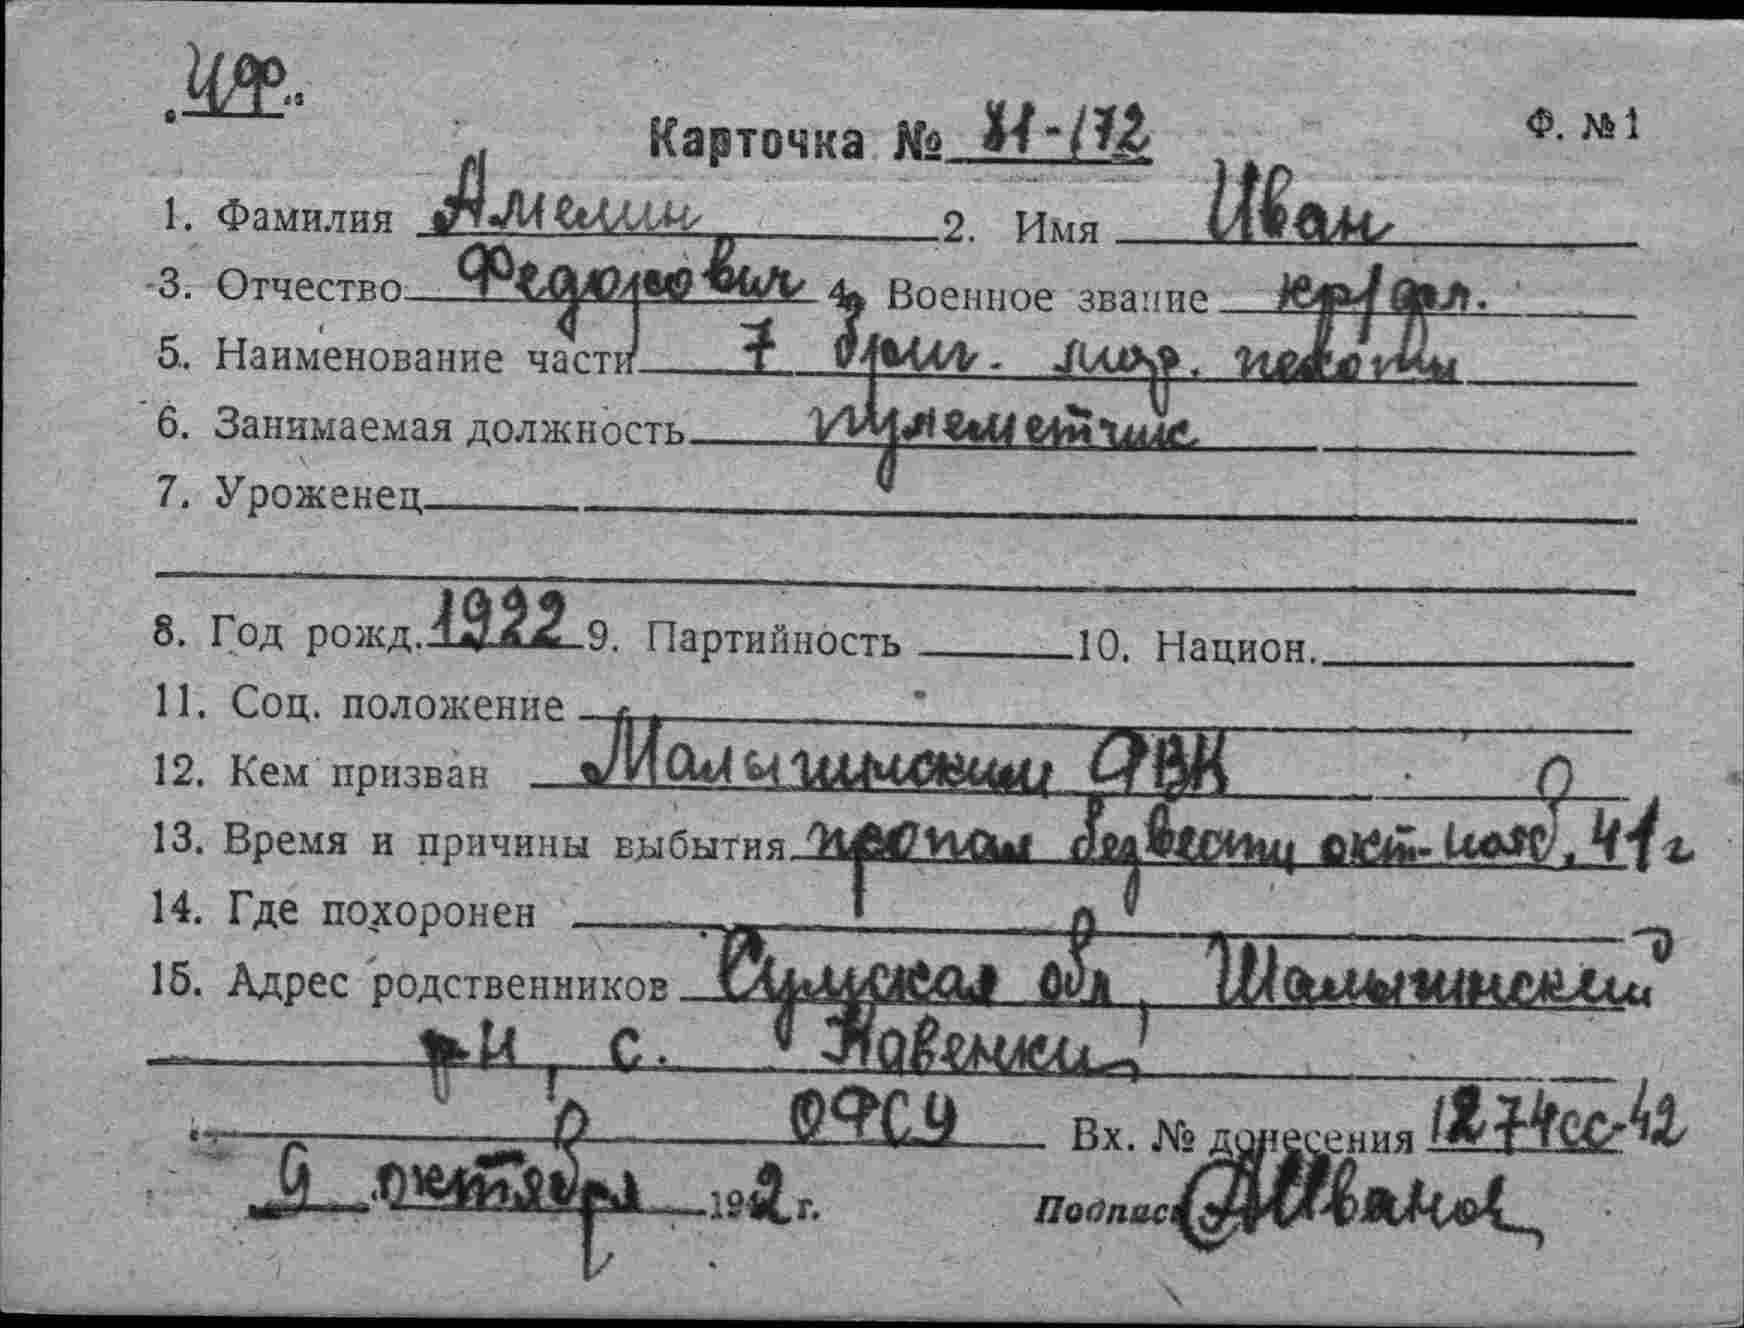 Ф. №1
Карточка № И-172
1. Фамилия Амелин 2. Имя Иван
3. Отчество Федорович 4. Военное звание
5. Наименование части 7 пехоты
6. Занимаемая должность пулеметчик
7. Уроженец
8. Год рожд. 1922 9. Партийность 10. Национ.
11. Соц. положение
12. Кем призван РВК
13. Время и причины выбытия пропал безвести 41 г
14. Где похоронен
15. Адрес родственников Сумская обл,
р-н, с.
Вх. № донесения 1274сс-42
9 октября 1942 г. Подпись